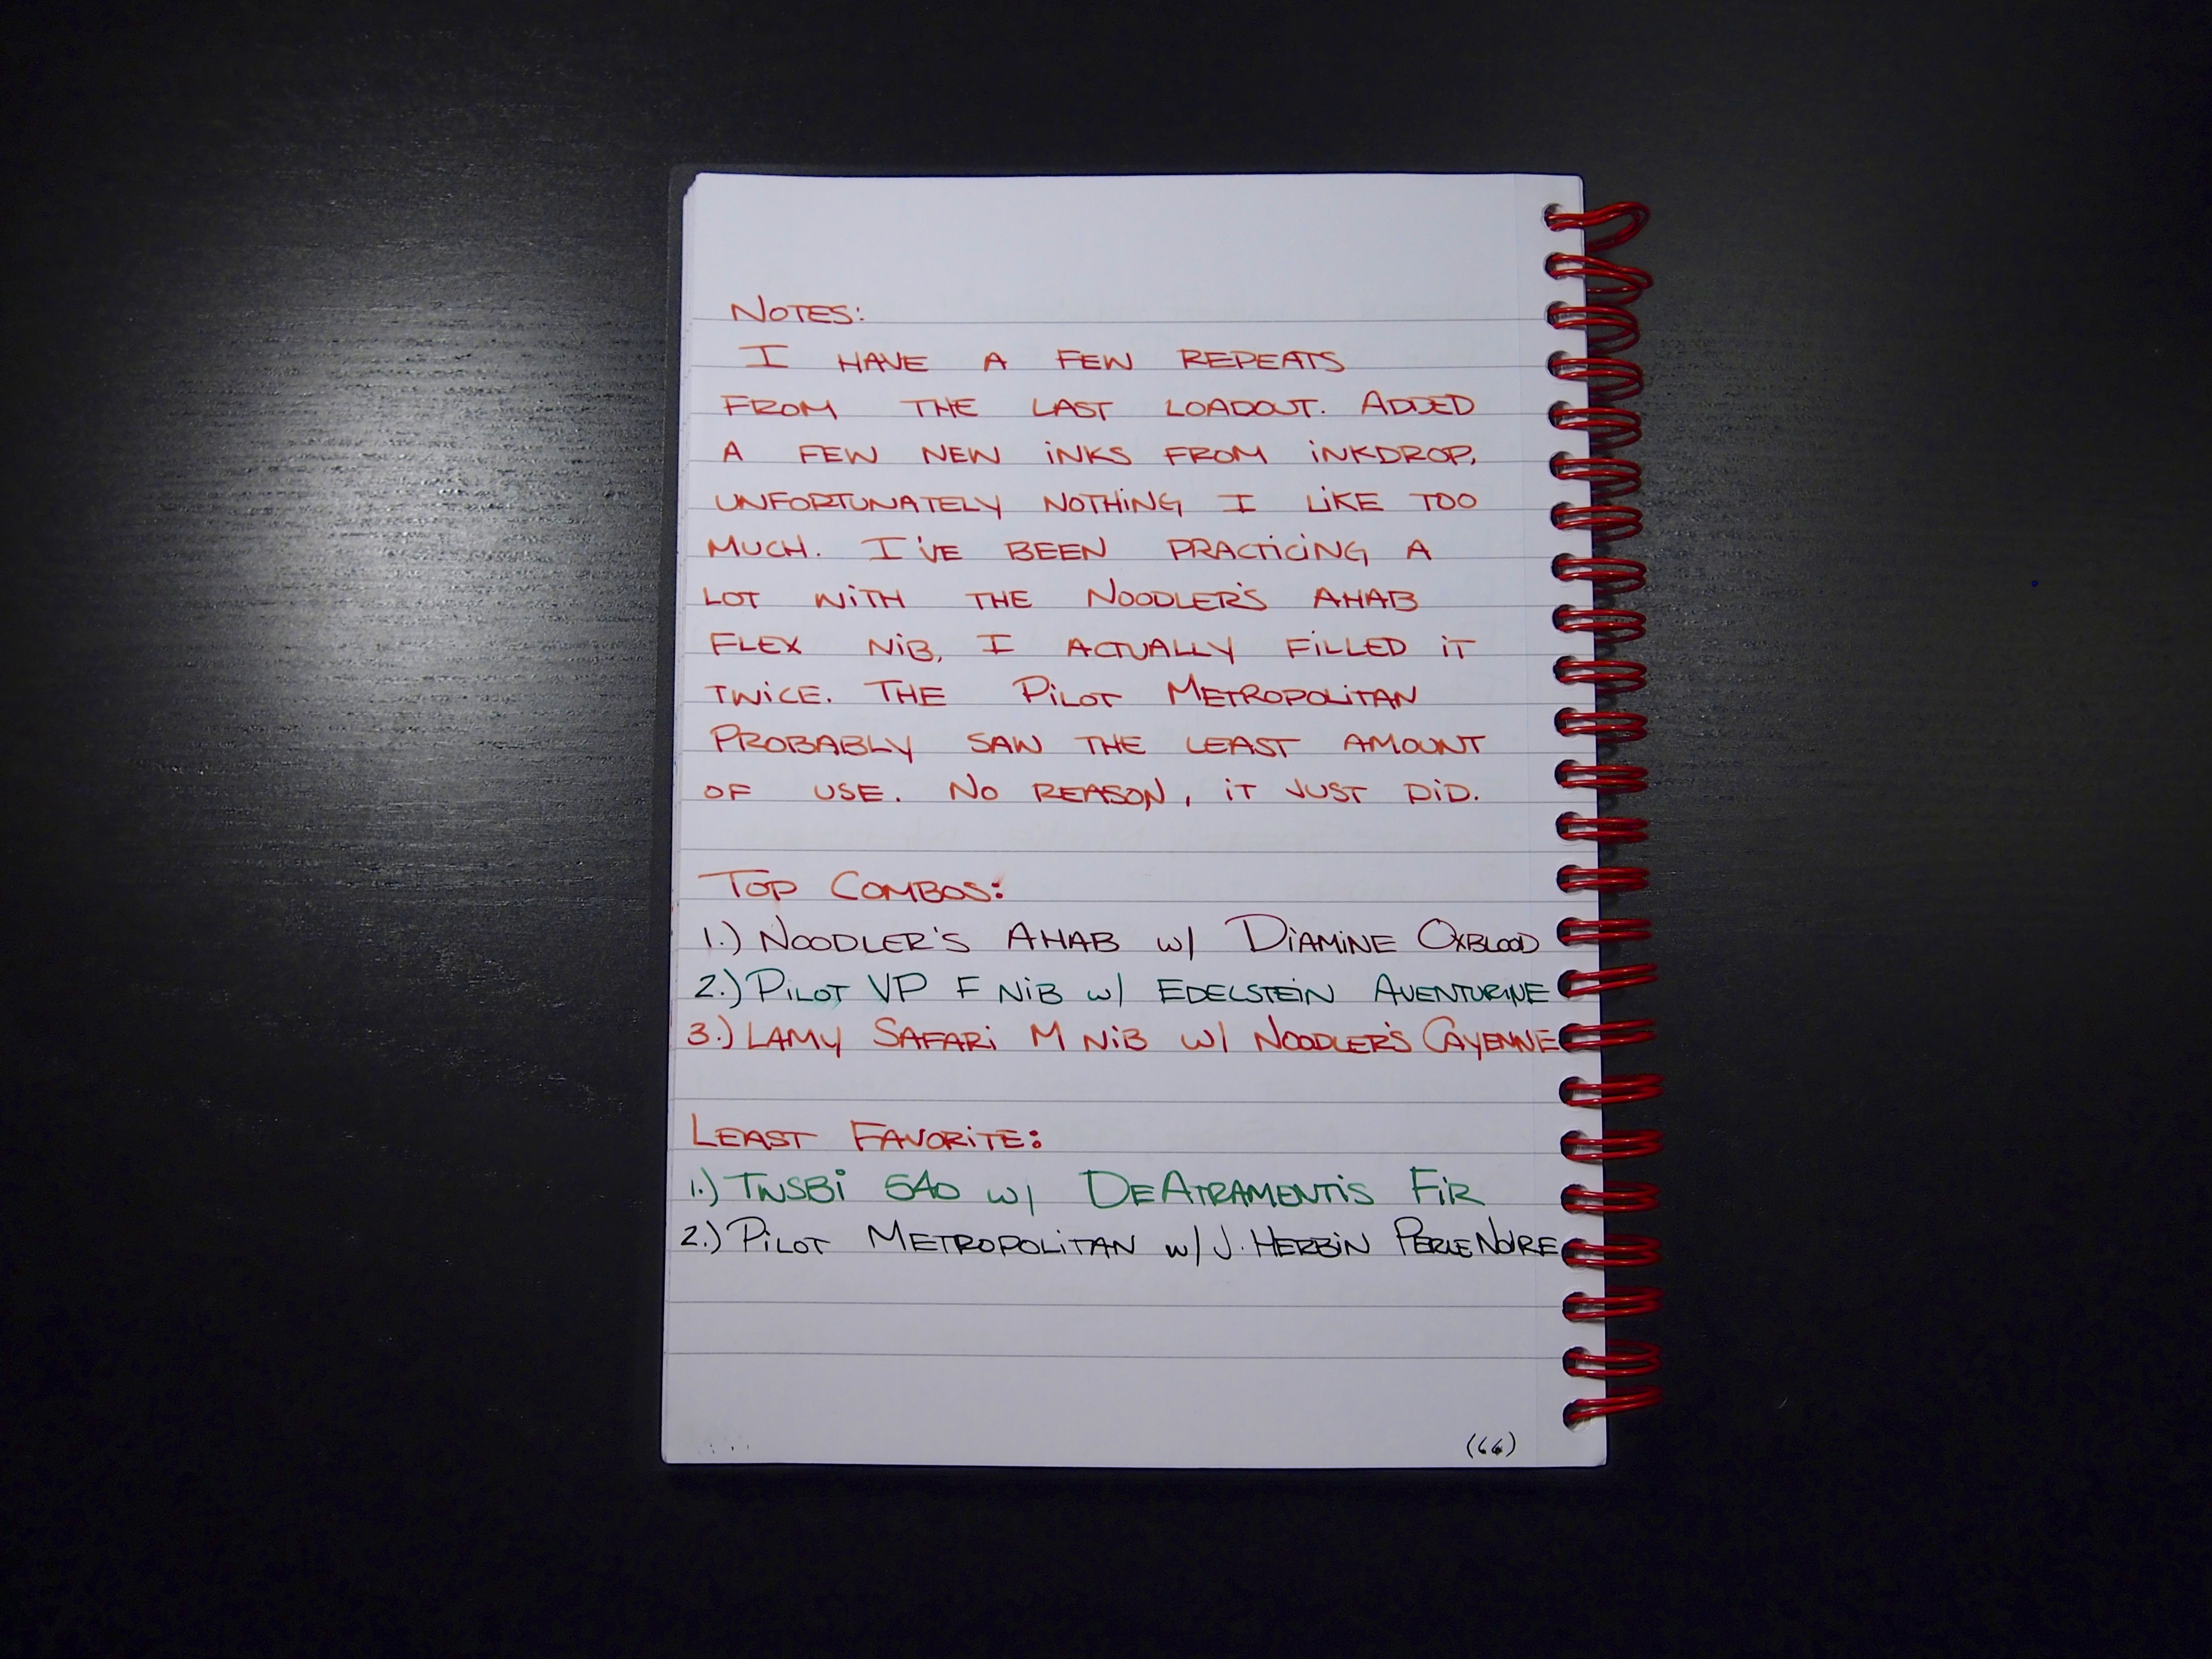 NOTES:
I HAVE A FEW REPEATS
FROM THE LAST LOADOUT. ADDED
A FEW NEW INKS FROM INKDROP,
UNFORTUNATELY NOTHING I LIKE TOO
MUCH. I'VE BEEN PRACTICING A
LOT WITH THE NOODLER'S AHAB
FLEX NIB, I ACTUALLY FILLED IT
TWICE. THE PILOT METROPOLITAN
PROBABLY SAW THE LEAST AMOUNT
OF USE. NO REASON, IT JUST DID.
TOP COMBOS:
1.) NOODLER'S AHAB W/ DIAMINE OXBLOOD
2.) PILOT VP F NIB W/ EDELSTEIN AVENTURINE
3.) LAMY SAFARI M NIB W/ NOODLER'S CAYENNE
LEAST FAVORITE:
1.) TWSBI 540 W/ DEATRAMENTIS FIR
2.) PILOT METROPOLITAN W/ J. HERBIN PERLE NOIRE
(66)